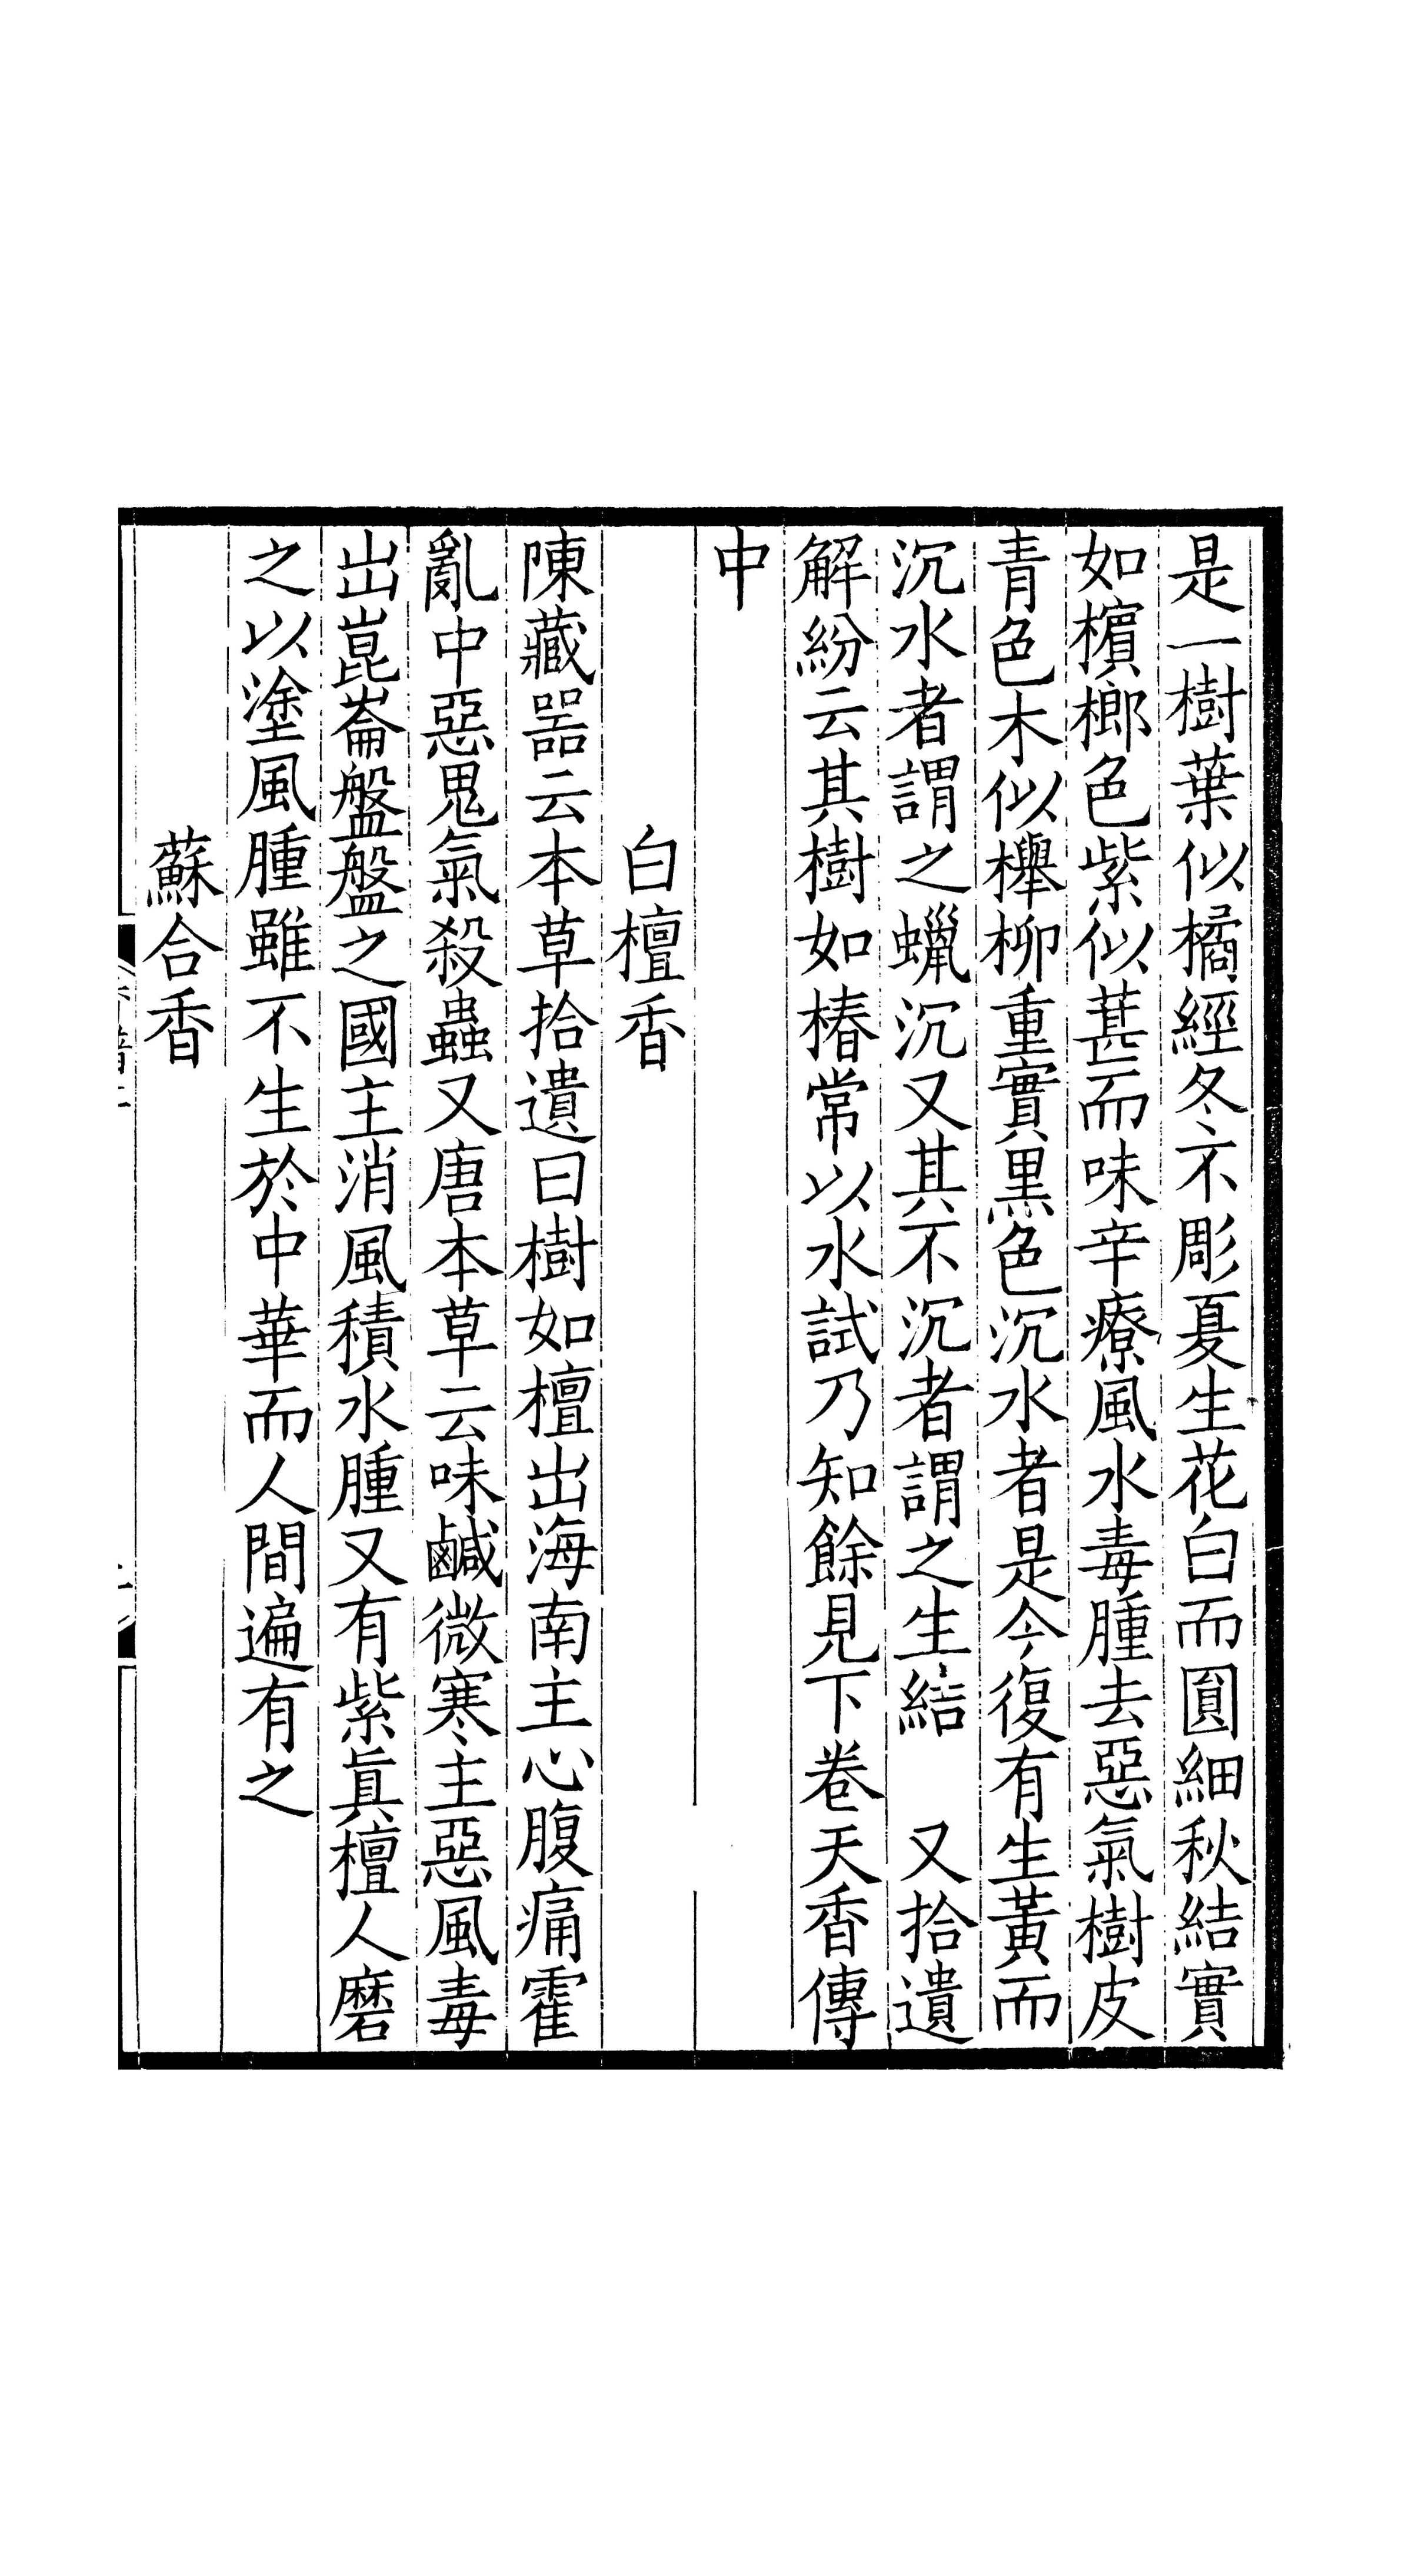 是一樹葉似橘經冬不彫夏生花白而圓細秋結實
如檳榔色紫似葚而味辛療風水毒腫去惡氣樹皮
青色木似櫸柳重實黑色沉水者是今復有生黃而
沉水者謂之蠟沉又其不沉者謂之生結　又拾遺
解紛云其樹如椿常以水試乃知餘見下卷天香傳
中
白檀香
陳藏器云本草拾遺曰樹如檀出海南主心腹痛霍
亂中惡鬼氣殺蟲又唐本草云味鹹微寒主惡風毒
出崑崙盤盤之國主消風積水腫又有紫眞檀人磨
之以塗風腫雖不生於中華而人間遍有之
蘇合香